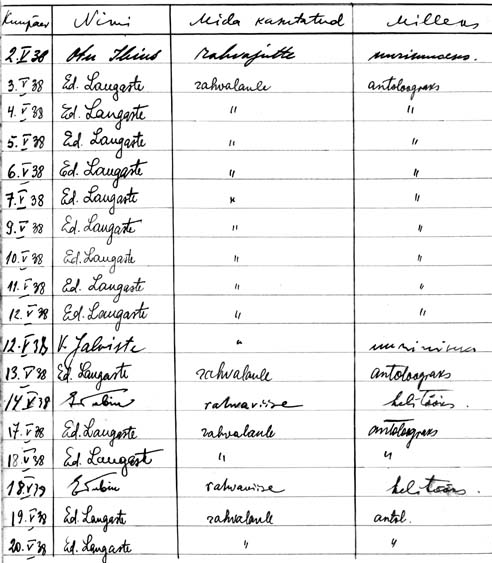 Kuupäev Nimi Mida kasutatud Milleks
2.V 38 Oskar rahvajutte
3.V 38 Ed. Laugaste rahvalaule antoloogiaks
4.V 38 Ed. Laugaste " "
5.V 38 Ed. Laugaste " "
6.V 38 Ed. Laugaste " "
7.V 38 Ed. Laugaste " "
9.V 38 Ed. Laugaste " "
10.V 38 Ed. Laugaste " "
11.V 38 Ed. Laugaste " "
12.V 38 Ed. Laugaste " "
12.V 38 V. Jalviste "
13.V 38 Ed. Laugaste rahvalaule antoloogiaks
14.V 38 E Tubin rahvaviise helitöös.
17.V 38 Ed. Laugaste rahvalaule antoloogiaks
18.V 38 Ed. Laugaste " "
18.V 39 E Tubin rahvaviise helitöös.
19.V 38 Ed. Laugaste rahvalaule antol.
20.V 38 Ed. Laugaste " "